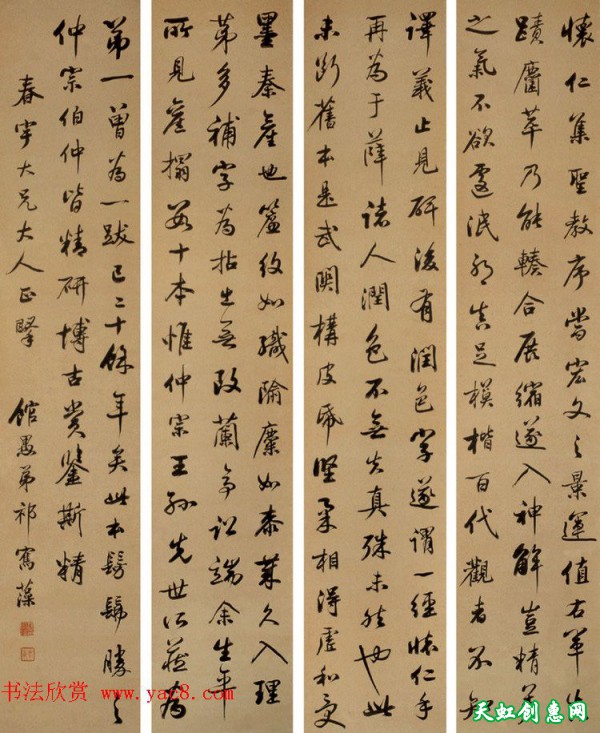 懷仁集聖教序當宏文之景運值右軍
蹟麕萃乃能輳合展縮遂入神解豈精英
之氣不欲遽泯真足模楷百代觀者不知
譯義止見碑後有潤色字遂謂一經懷仁手
再為于薛諸人潤色不無失真殊未然也此
未斷舊本是武關構皮紙堅柔相得虛和受
墨秦產也簾紋如織隃麋如漆久入理
第多補字為拈出無改蘭亭訟端余生平
所見舊搨數十本惟仲宗王孫先世所藏為
第一曾為一跋已二十餘年矣此本髣髴勝之
仲宗伯仲皆精研博古賞鑒斯精
春宇大兄大人正 館愚弟祁寯藻
书法欣赏 www.yac8.com
天虹创惠网